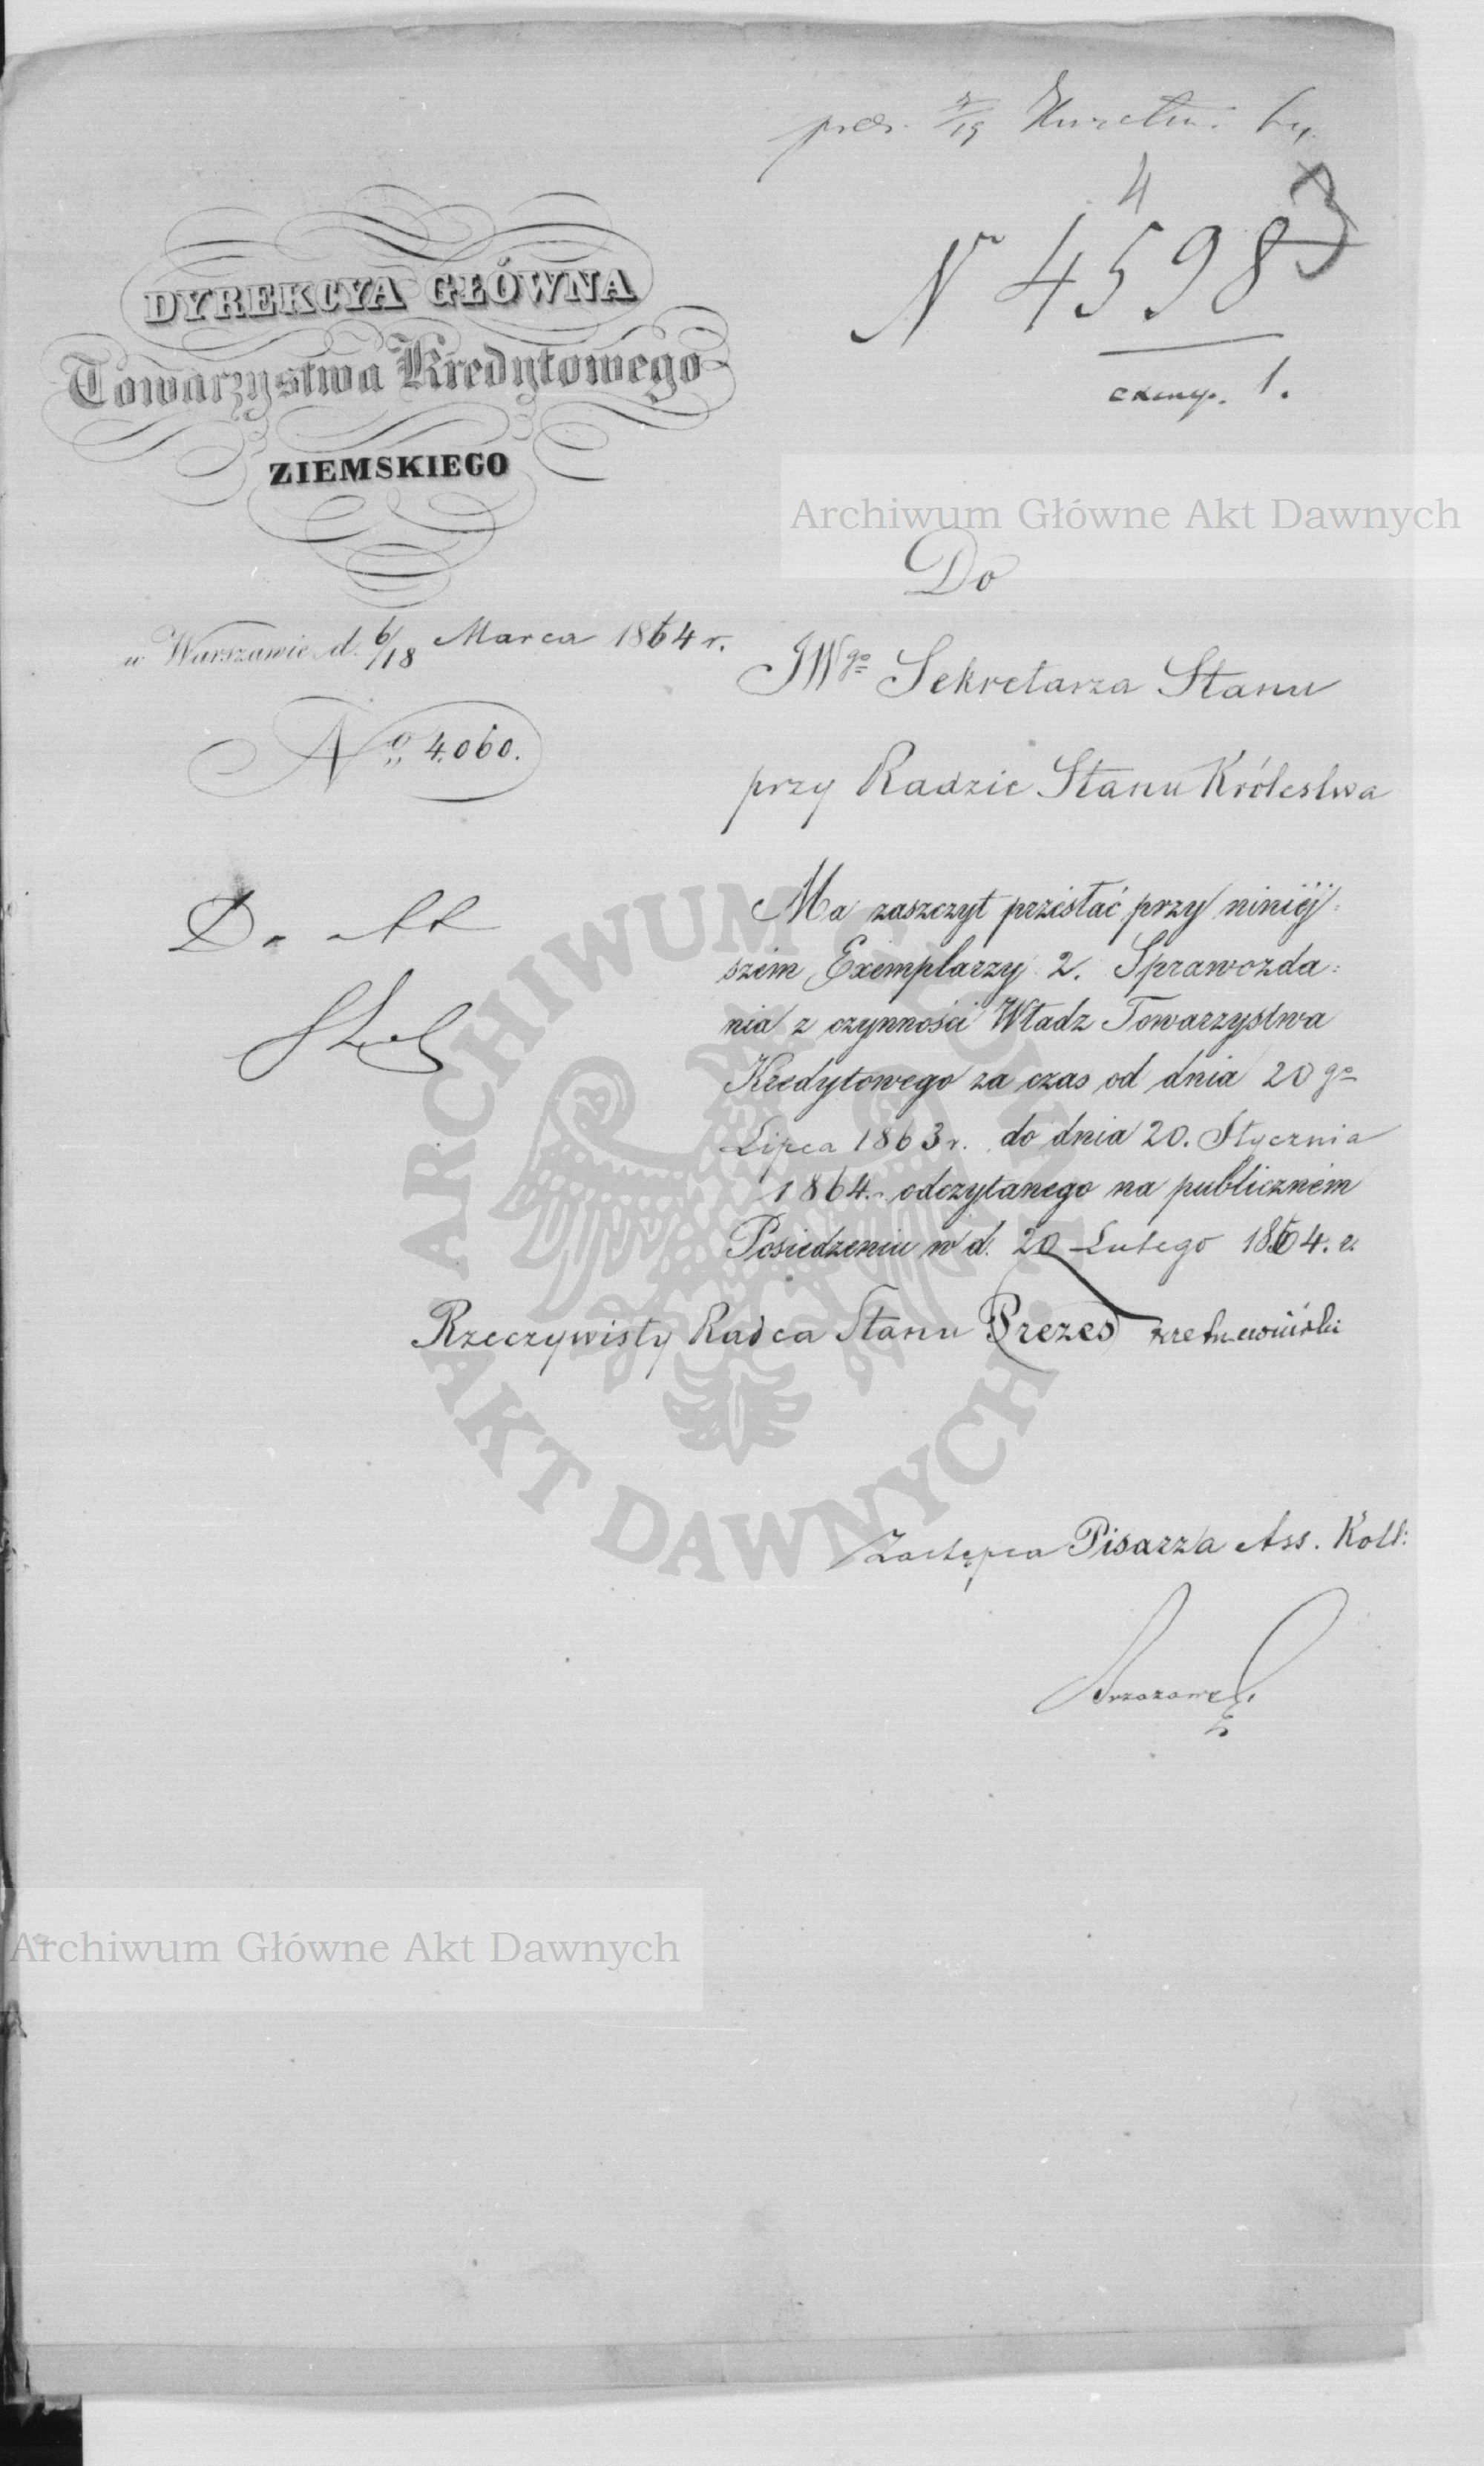 4
N 4598 3
exemp. 1.
DYREKCYA GŁÓWNA
Towarzystwa Kredytowego
ZIEMSKIEGO
w Warszawie d. 6/18 Marca 1864 r.
No 4.060.
Do
JWgo Sekretarza Stanu
przy Radzie Stanu Królestwa
Do akt
Ma zaszczyt przesłać przy niniéj=
szem Exemplarzy 2. Sprawozda=
nia z czynności Władz Towarzystwa
Kredytowego za czas od dnia 20 go
Lipca 1863 r. do dnia 20. Stycznia
1864. odczytanego na publiczném
Posiedzeniu w d. 20 Lutego 1864. r.
Rzeczywisty Radca Stanu Prezes
Zastępca Pisarza Ass. Koll:
Archiwum Główne Akt Dawnych
ARCHIWUM GŁÓWNE AKT DAWNYCH
Archiwum Główne Akt Dawnych